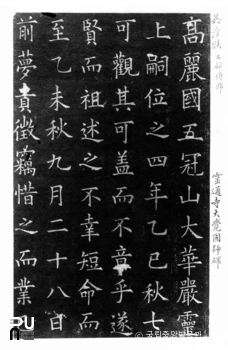 工部侍郎
靈通寺大覺國師碑
高麗國五冠山大華嚴靈
上嗣位之四年乙巳秋七
可觀其可盖而不章乎遂
賢而祖述之不幸短命而
至乙未秋九月二十八日
前夢徵竊惜之而業
국립중앙박물관